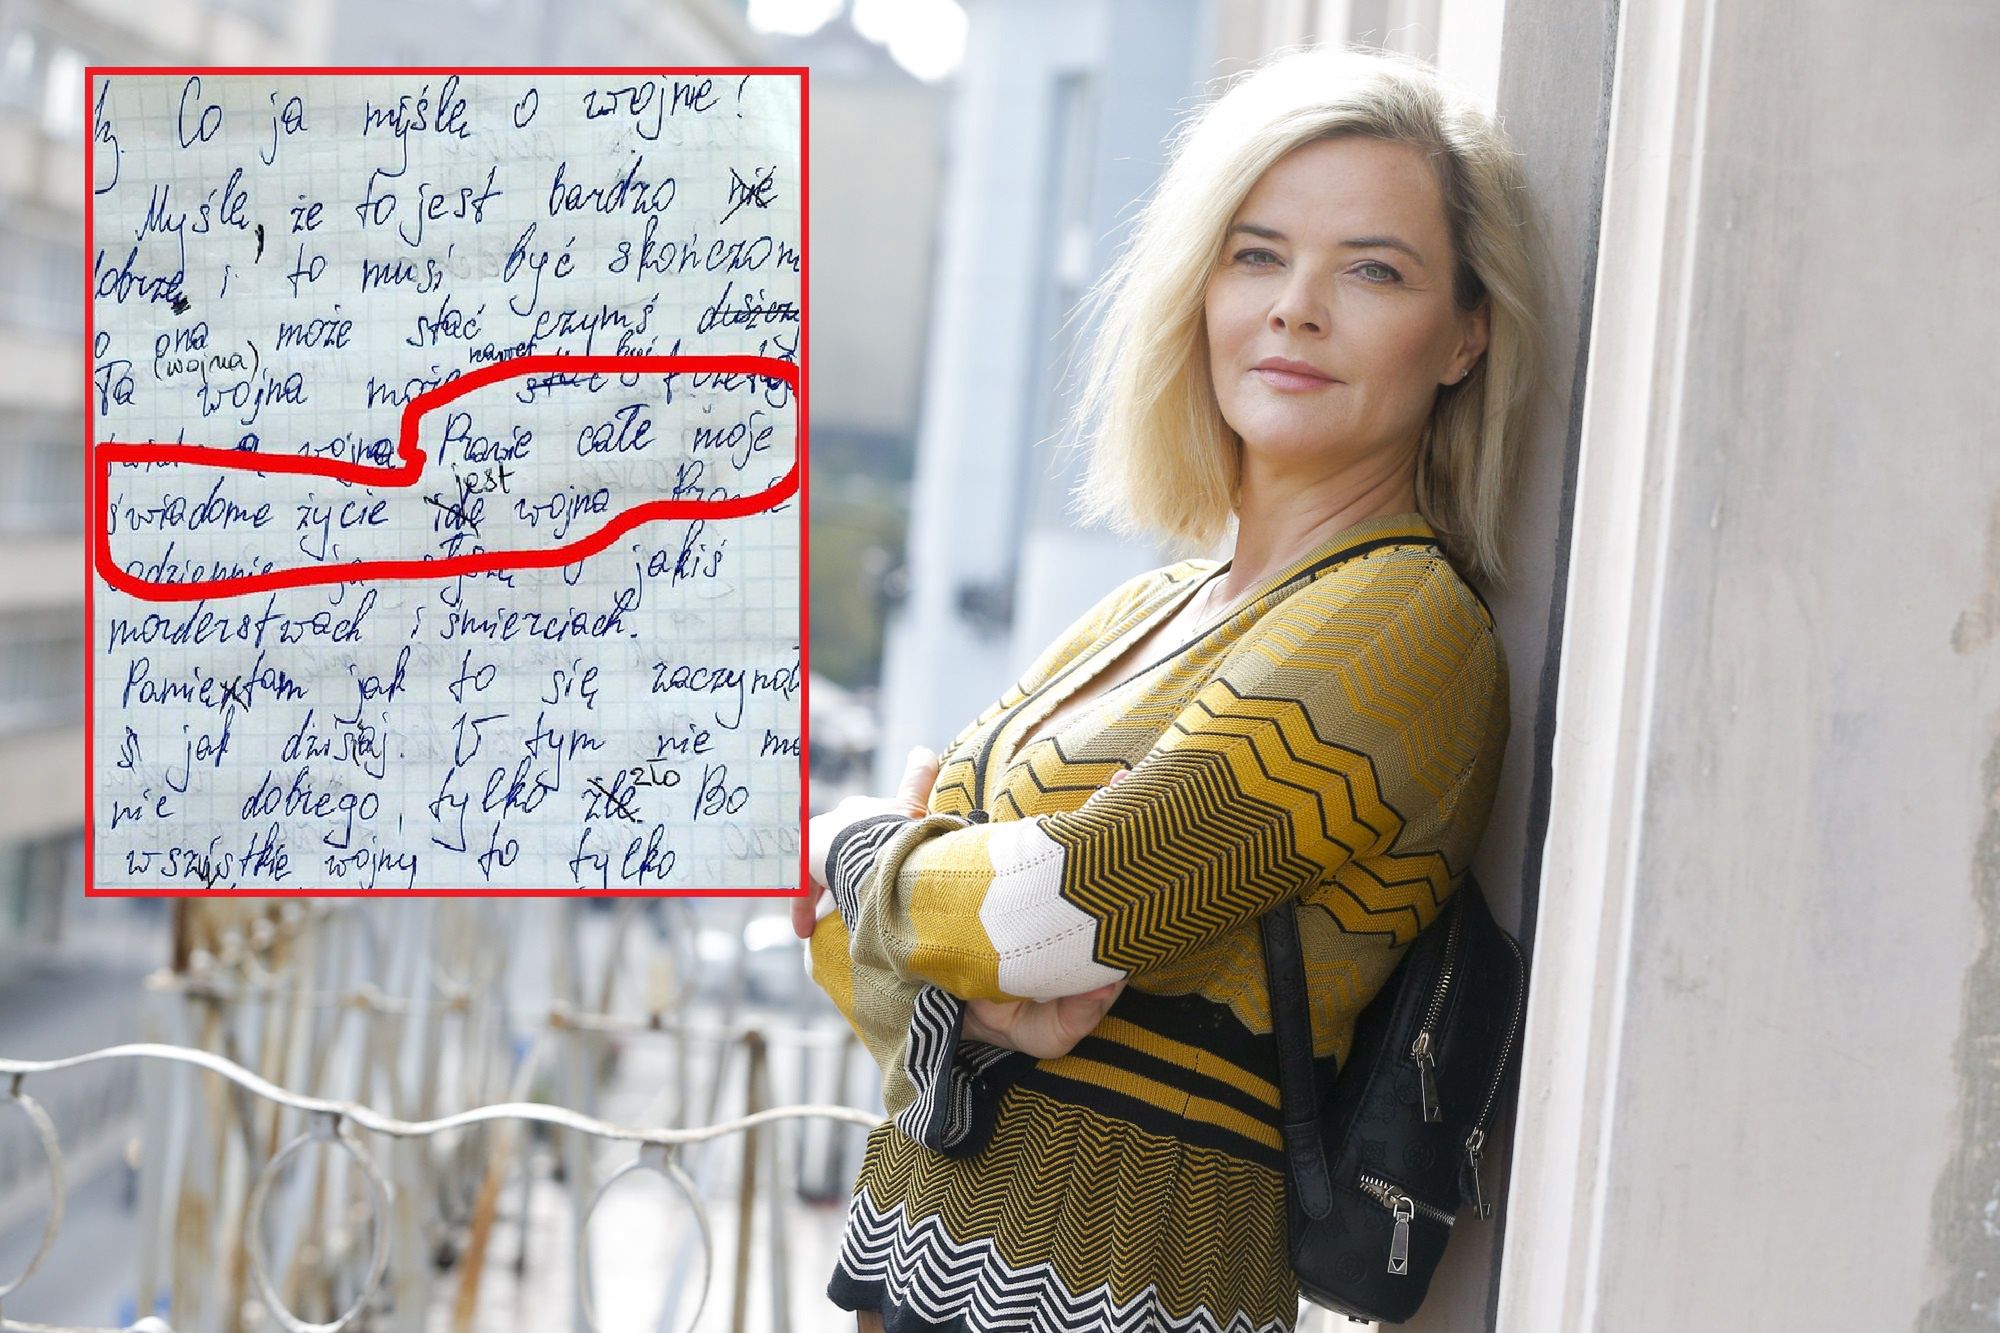 Co ja myślę o wojnie?
Myślę, że to jest bardzo nie
dobrze i to musi być skończon
ona może stać czymś
(wojna) nawet
Ta wojna może stać być
wojna Prawie całe moje
jest
świadome życie idę wojna
odziennie ja słyszę o jakiś
morderstwach i śmierciach.
Pamiętam jak to się zaczynał
jak dzisiaj. V tym nie ma
zło
nie dobrego, tylko złe Bo
wszystkie wojny to tylko